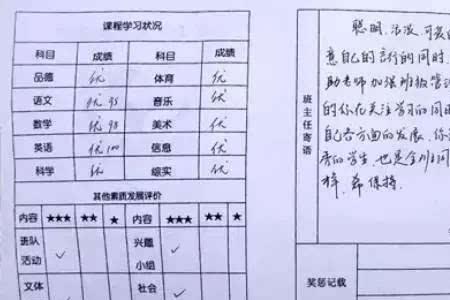 课程学习状况
科目 成绩 科目 成绩
品德 优 体育 优
语文 优 95 音乐 优
数学 优 98 美术 优
英语 优 100 信息 优
科学 优 综实 优
其他素质发展评价
内容 ★★★ ★★ ★ 内容 ★★★ ★★ ★
班队活动 ✓ 兴趣小组 ✓
文体 社会
班主任寄语
聪明、活泼、可爱的
意自己的言行的同时
助老师加强班级管
的你在关注学习的同时
自己各方面的发展,你
秀的学生,也是全班同
榜,希保持.
奖惩记载